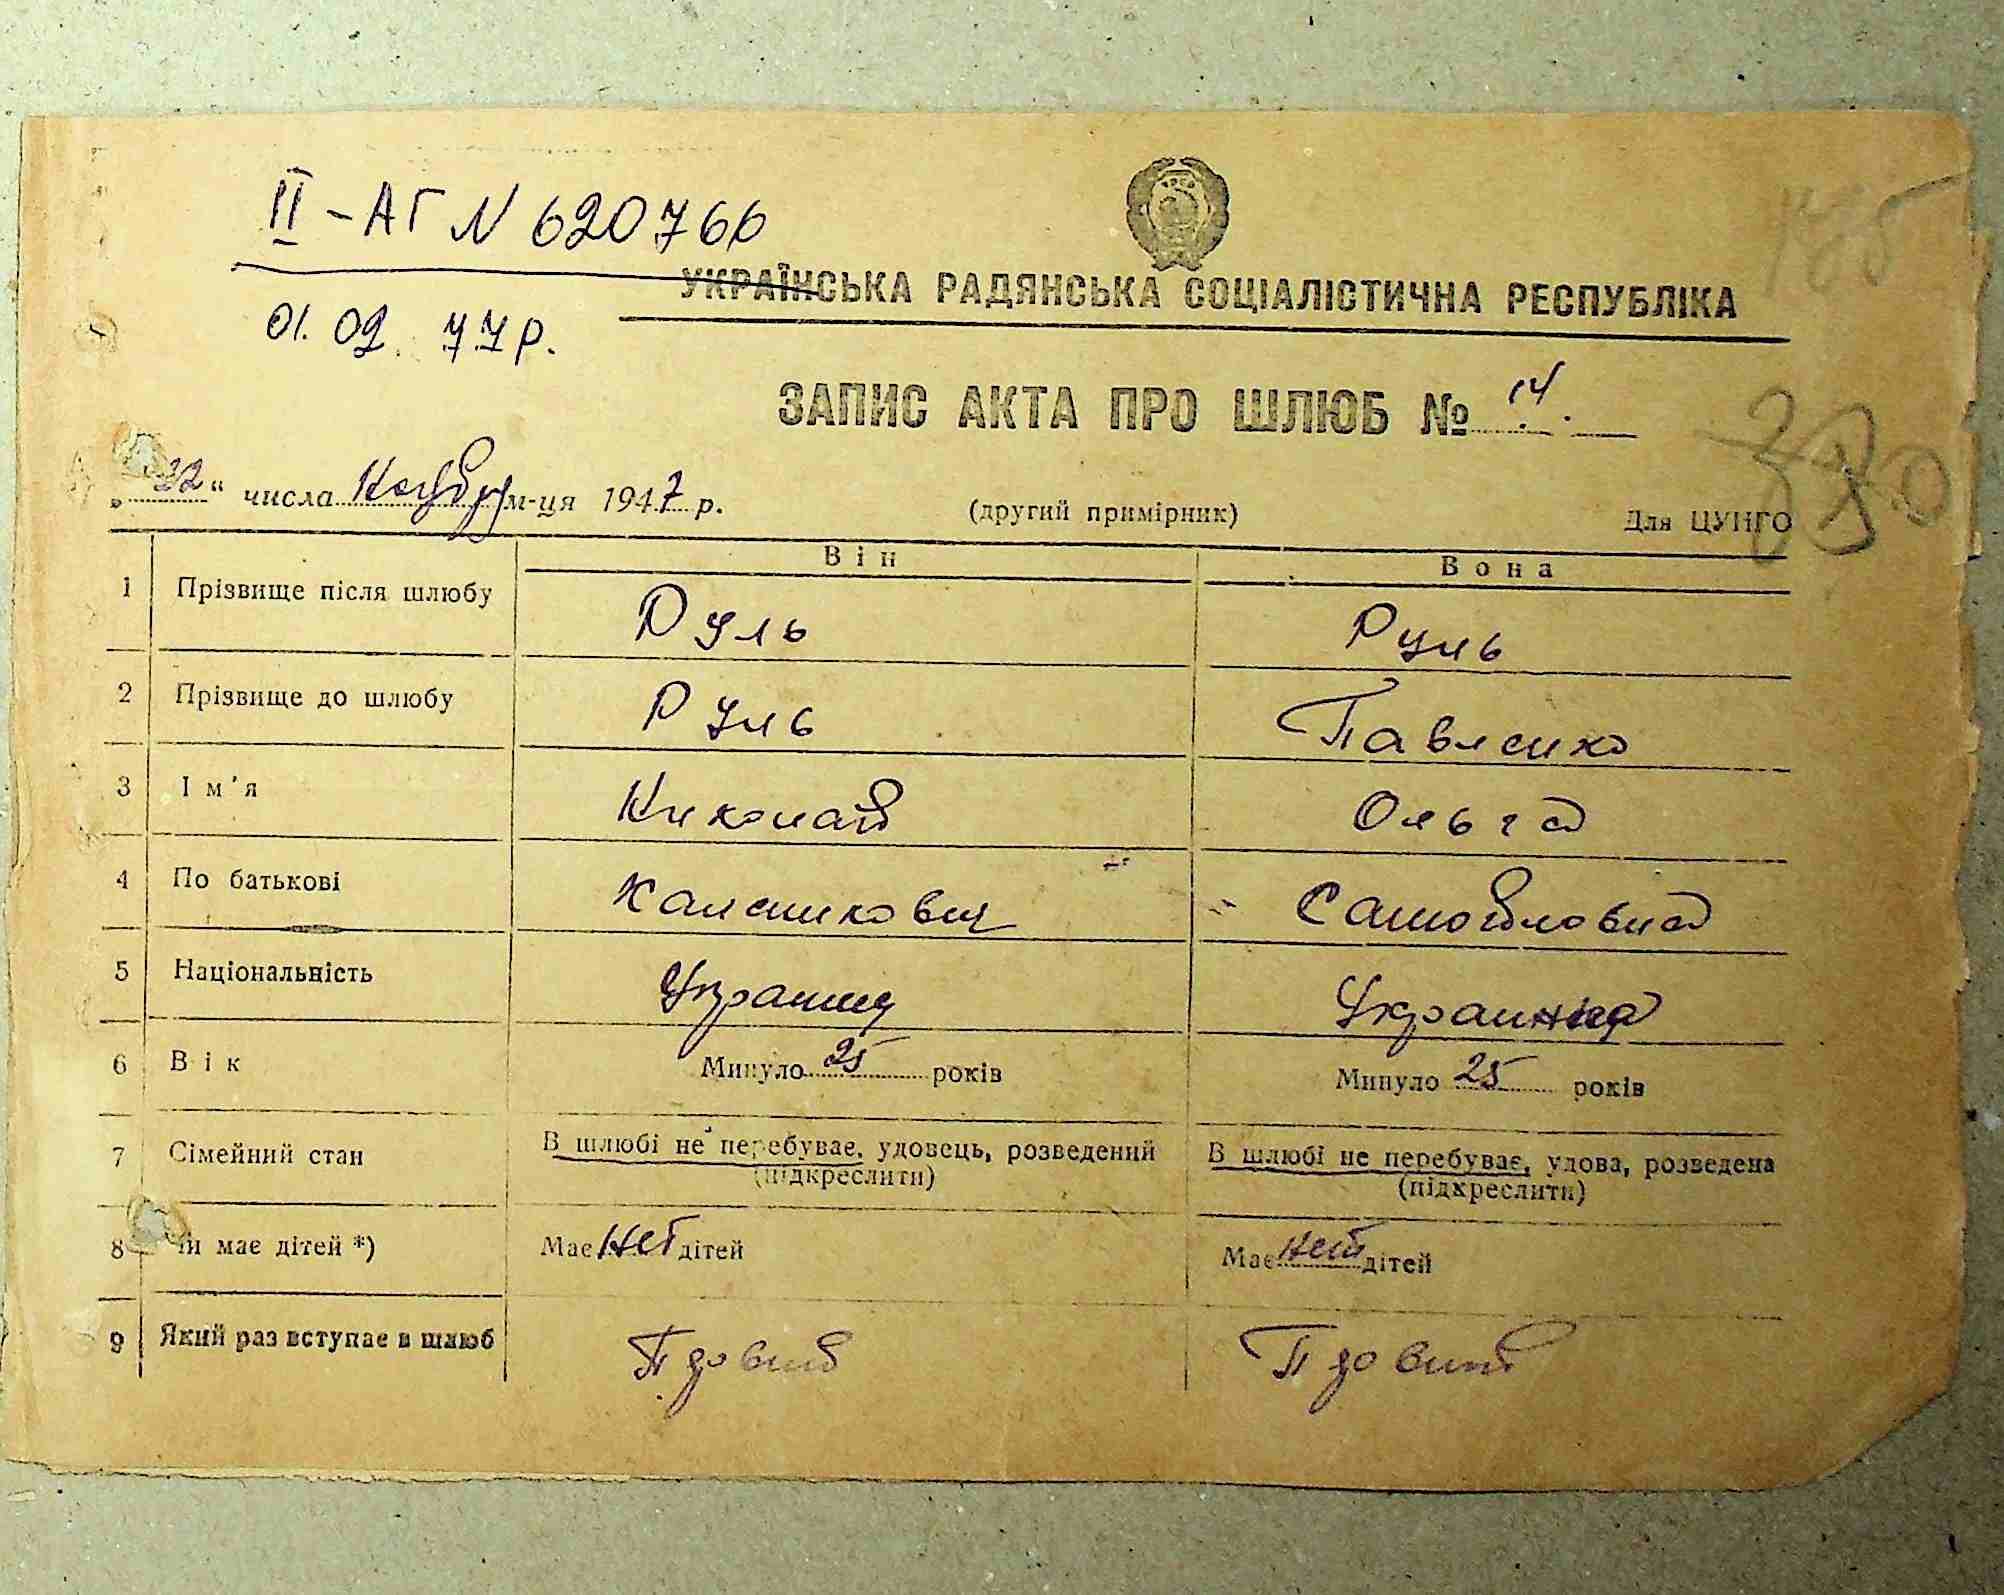 II - АГ N 620766
УКРАЇНСЬКА РАДЯНСЬКА СОЦІАЛІСТИЧНА РЕСПУБЛІКА
01.02.77р.
ЗАПИС АКТА ПРО ШЛЮБ № 14
„22“ числа Ноября м-ця 1947 р. (другий примірник) Для ЦУНГО
Він Вона
1 Прізвище після шлюбу Руль Руль
2 Прізвище до шлюбу Руль Павленко
3 Ім'я Николай Ольга
4 По батькові Каленикович Самойловна
5 Національність Украинец Украинка
6 Вік Минуло 25 років Минуло 25 років
7 Сімейний стан В шлюбі не перебуває, удовець, розведений В шлюбі не перебуває, удова, розведена
(підкреслити) (підкреслити)
8 Чи має дітей *) Має нет дітей Має нет дітей
9 Який раз вступає в шлюб